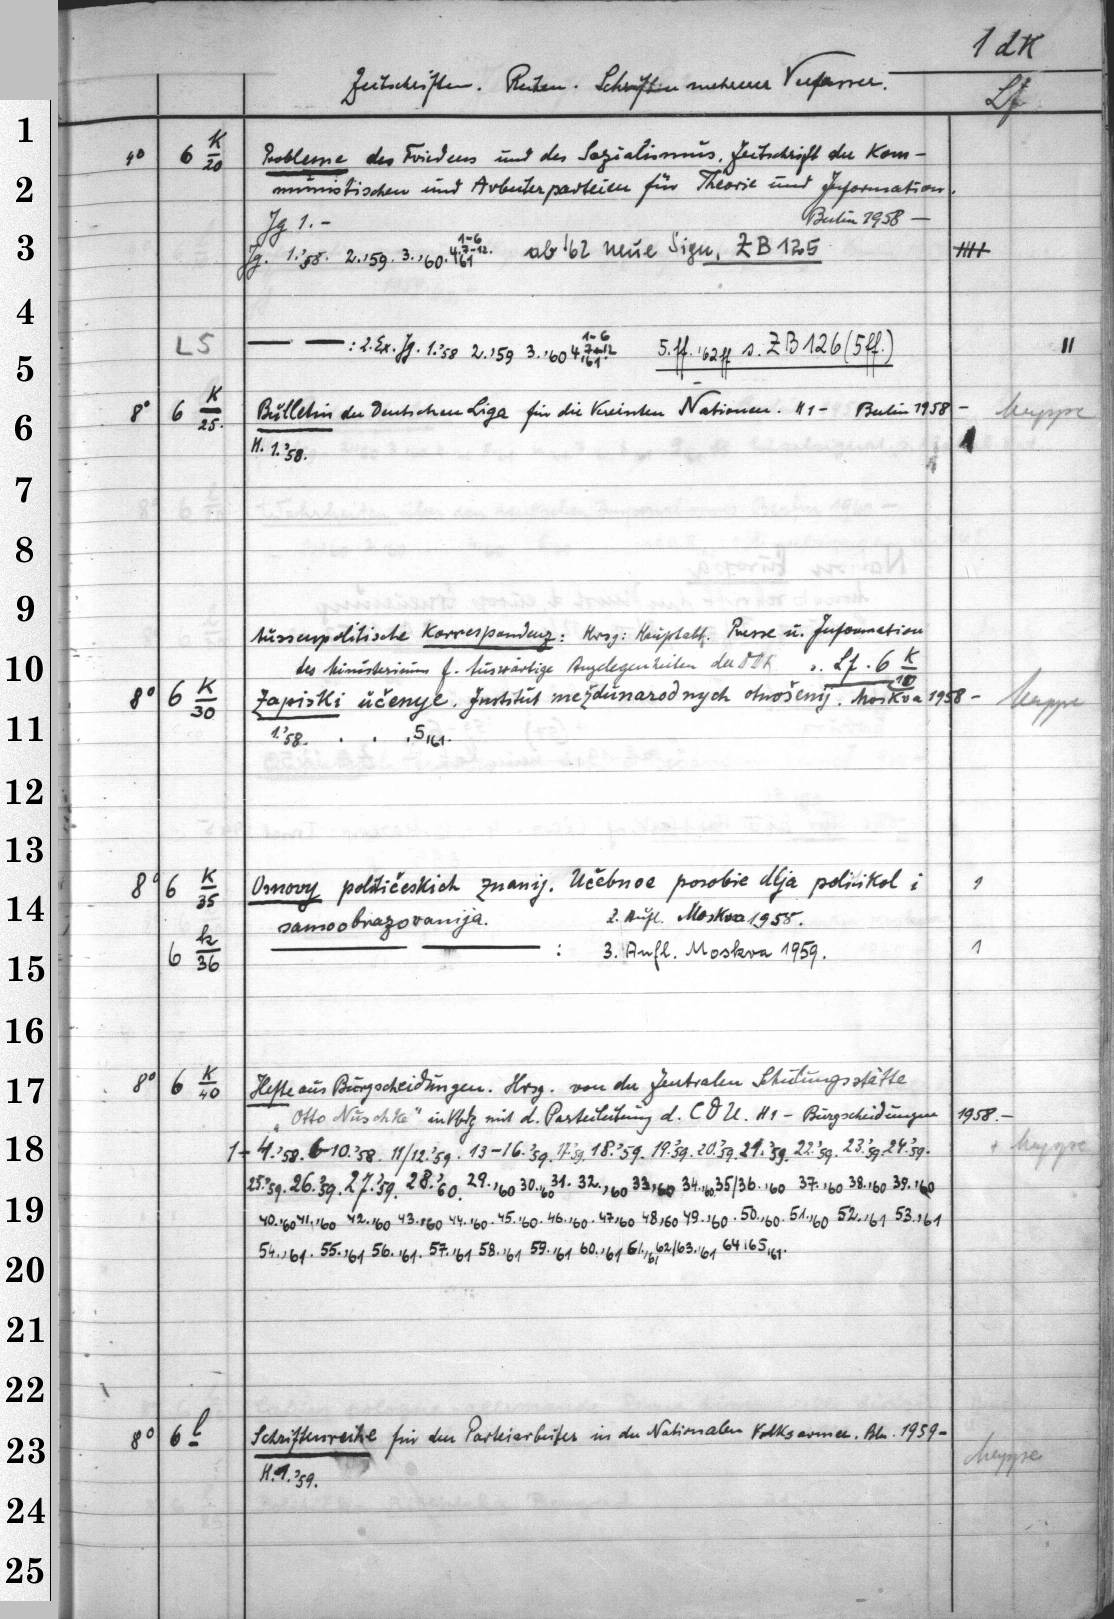 1 dK
Zeitschriften. Reihen. Schriften mehrerer Verfasser.
Lf
1
4° 6 K/20 Probleme des Friedens und des Sozialismus. Zeitschrift der Kom-
2
munistischen und Arbeiterparteien für Theorie und Information.
Jg 1.- Berlin 1958 —
3
Jg. 1.'58. 2.,'59. 3.,'60. 4.,'61 1-6 7-12. ab '62 neue Sign. ZB 125
4
L5 — — : 2. Ex. Jg. 1.'58 2.,'59 3.,'60 4.,'61 1-6 7-12 5.ff. '62ff s. ZB 126 (5ff.) II
5
8° 6 K/25. Bulletin der Deutschen Liga für die Vereinten Nationen. H 1- Berlin 1958 - Mappe
6
H. 1.'58.
7
8
9
Aussenpolitische Korrespondenz: Hrsg: Hauptabt. Presse u. Information
10
des Ministeriums f. Auswärtige Angelegenheiten der DDR s. Lf. 6 K/10
8° 6 K/30 Zapiski učenye. Institut meždunarodnych otnošenij. Moskva 1958 - Mappe
11
1.'58. . . . 5,'61.
12
13
8° 6 K/35 Osnovy političeskich znanij. Učebnoe posobie dlja politškol i 1
14
samoobrazovanija. 2. Aufl. Moskva 1958.
6 k/36 — — : 3. Aufl. Moskva 1959. 1
15
16
8° 6 K/40 Hefte aus Burgscheidungen. Hrsg. von der Zentralen Schulungsstätte
17
"Otto Nuschke" in Vbdg mit d. Parteileitung d. CDU. H 1 - Burgscheidungen 1958.-
18
1-4.'58. 6-10.'58. 11/12.'59. 13-16.'59. 17.'59. 18.'59. 19.'59. 20.'59. 21.'59. 22.'59. 23.'59. 24.'59. + Mappe
25.'59. 26.'59. 27.'59. 28.'60. 29.,'60 30.'60 31. 32.,'60 33,'60 34.'60. 35/36.'60 37.'60 38.'60 39.'60
19
40.'60 41.'60 42.'60 43.'60 44.'60. 45.'60. 46.'60. 47,'60 48,'60 49.'60. 50.'60. 51.'60 52.'61 53.'61
54.'61. 55.'61 56.'61. 57.'61 58.'61 59.'61 60.'61 61.'61 62/63.'61 64 65.'61.
20
21
22
8° 6 l Schriftenreihe für den Parteiarbeiter in der Nationalen Volksarmee. Bln. 1959-
23
Mappe
H. 1.'59.
24
25